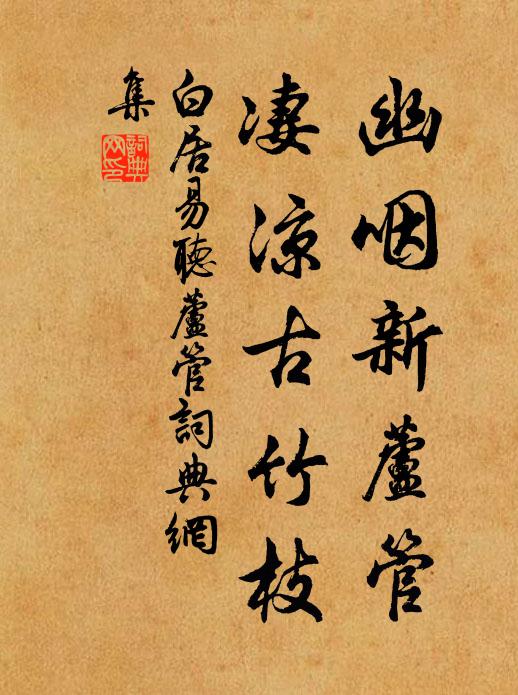 幽咽新蘆管
凄涼古竹枝
白居易聽蘆管詞典網
集
詞典
网印